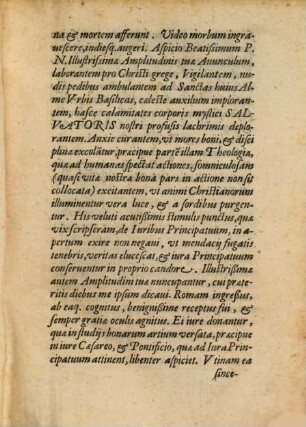 na & mortem afferunt. Video morbum ingra-
uescere, indiesq. augeri. Aspicio Beatissimum P.
N. Illustrissimæ Amplitudinis tuæ Auunculum,
laborantem pro Christi grege, Vigilantem, nu-
dis pedibus ambulantem ad Sanctas huius Al-
mæ Vrbis Basilicas, cæleste auxilium implorantem,
hasce calamitates corporis mystici SAL-
VATORIS nostri profusis lachrimis deplo-
rantem. Anxie curantem, vt mores boni, & disci
plina excolãtur, præcipue partẽ illam Theologiæ,
quæ ad humanas spectat actiones, somniculosam
(quasi vitæ nostræ bona pars in actione non sit
collocata) excitantem, vt animi Christianorum
illuminentur vera luce, & a sordibus purgen-
tur. His veluti acutissimis stimulis punctus, quæ
vix scripseram, de Iuribus Principatuum, in a-
pertum exire non negaui, vt mendacij fugatis
tenebris, veritas elucescat, & iura Principatuum
conseruentur in proprio candore. Illustrissimæ
autem Amplitudini tuæ nuncupantur, cui præte-
ritis diebus me ipsum dicaui. Romam ingressus,
ab eaq. cognitus, benignissime receptus fui, &
semper gratiæ oculis agnitus. Ei iure donantur,
quæ in studijs bonarum artium versata, præcipue
in iure Cæsareo, & Pontificio, quæ ad Iura Prin-
cipatuum attinent, libenter aspiciet. Vtinam ea
since-